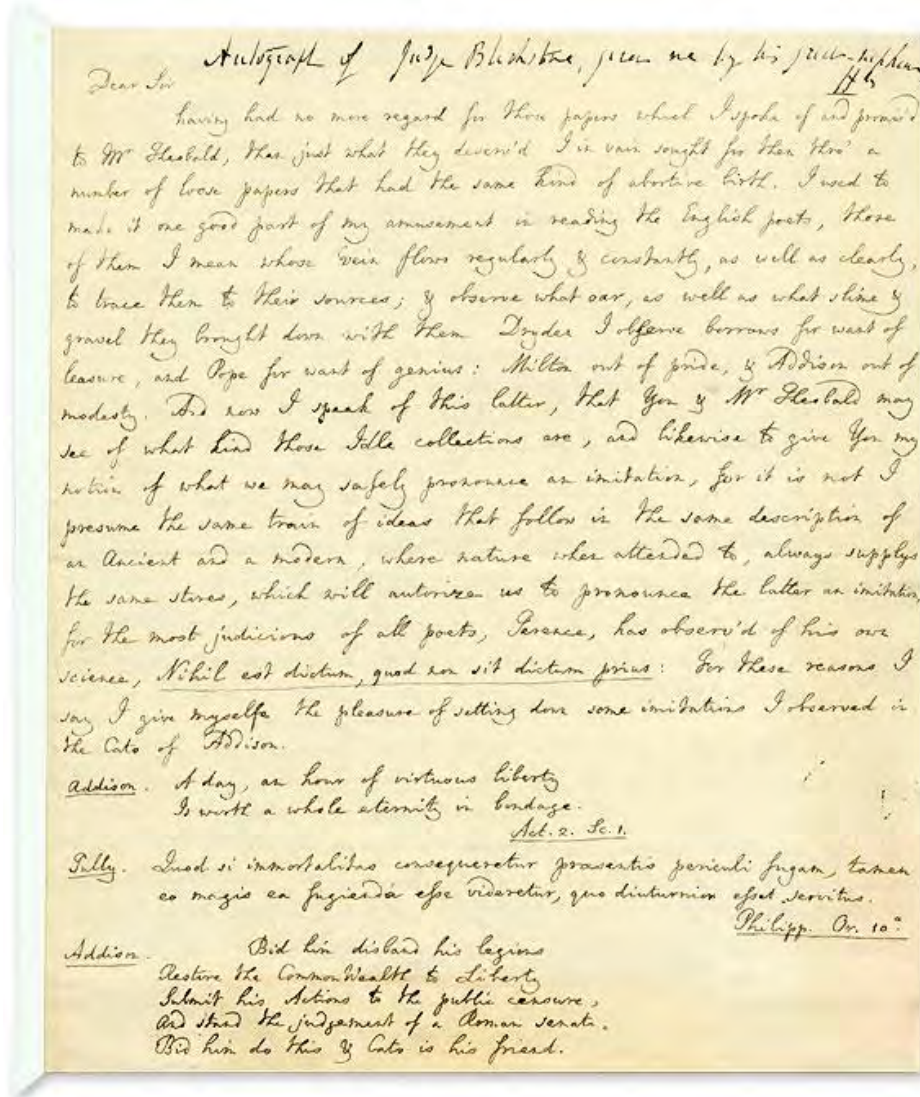 Autograph of Judge Blackstone, given me by his great-nephew
Dear Sir
having had no more regard for those papers which I spoke of and promis'd
to Mr Theobald, than just what they deserv'd I in vain sought for them thro' a
number of loose papers that had the same kind of abortive birth. I used to
make it one good part of my amusement in reading the English poets, those
of them I mean whose vein flows regularly & constantly, as well as clearly,
to trace them to their sources; & observe what oar, as well as what slime &
gravel they brought down with them Dryden I observe borrows for want of
leasure, and Pope for want of genius: Milton out of pride, & Addison out of
modesty. And now I speak of this latter, that You & Mr Theobald may
see of what kind those Idle collections are, and likewise to give You my
notion of what we may safely pronounce an imitation, for it is not I
presume the same train of ideas that follow in the same description of
an Ancient and a modern, where nature when attended to, always supplys
the same stores, which will autorize us to pronounce the latter an imitation,
for the most judicious of all poets, Terence, has observ'd of his own
science, Nihil est dictum, quod non sit dictum prius: For these reasons I
say I give myselfe the pleasure of setting down some imitations I observed in
the Cato of Addison.
Addison. A day, an hour of virtuous liberty
Is worth a whole eternity in bondage.
Act. 2. Sc. 1.
Tully. Quod si immortalitas consequeretur præsentis periculi fugam, tamen
eo magis ea fugienda esse videretur, quo diuturnior esset servitus.
Philipp. Or. 10a.
Addison. Bid him disband his legions
Restore the CommonWealth to Liberty
Submit his Actions to the public censure,
And stand the judgement of a Roman senate,
Bid him do this & Cato is his friend.